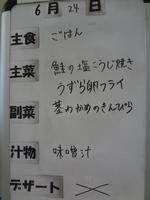 6月24日
主食 ごはん
主菜 鮭の塩こうじ焼き
うずら卵フライ
副菜 茎わかめのきんぴら
汁物 味噌汁
デザート ×